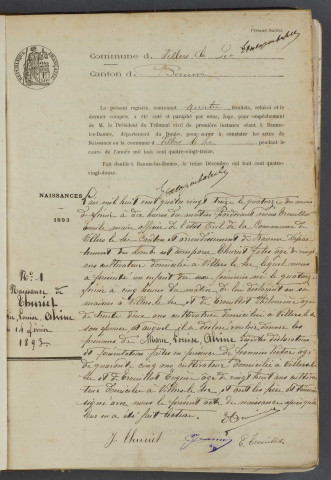 Commune de Villers le Sec
Canton de Baume
Le présent registre, contenant quatre feuillets, celui-ci et le
dernier compris, a été coté et paraphé par nous, Juge, pour empêchement
de M. le Président du Tribunal civil de première instance séant à Baume-
les-Dames, département du Doubs, pour servir à constater les actes de
Naissances en la commune de Villers le Sec pendant le
cours de l'année mil huit cent quatre-vingt-treize.
Fait double à Baume-les-Dames, le treize Décembre mil huit cent quatre-
vingt-douze.
NAISSANCES
1893
No 1
Naissance de
Thuriet
Louise Albine
14 février
1893
L'an mil huit cent quatre vingt treize le quatorze du mois
de février à dix heures du matin Pardevant nous
maire officier de l'état civil de la Commune de
Villers le Sec Canton et arrondissement de Baume Dépar-
tement du Doubs est comparu Thuriet Jules âgé de vingt
ans cultivateur domicilié à Villers le Sec lequel nous
a présenté un enfant du sexe féminin né le quatorze
février à cinq heures du matin de lui déclarant en sa
maison à Villers le Sec et de
de trente deux ans cultivatrice domiciliée à Villers le Sec
son épouse et auquel il a déclaré vouloir donner les
prénoms de Marie Louise Albine Lesdites déclaration
et présentation faites en présence de
de quarante cinq ans cultivateur domicilié à Villers
le Sec et de âgé de vingt huit ans cultiva-
teur domicilié à Villers le Sec et ont les père et témoins
signé avec nous le présent acte de naissance après qu'il
leur en a été fait lecture.
J. Thuriet